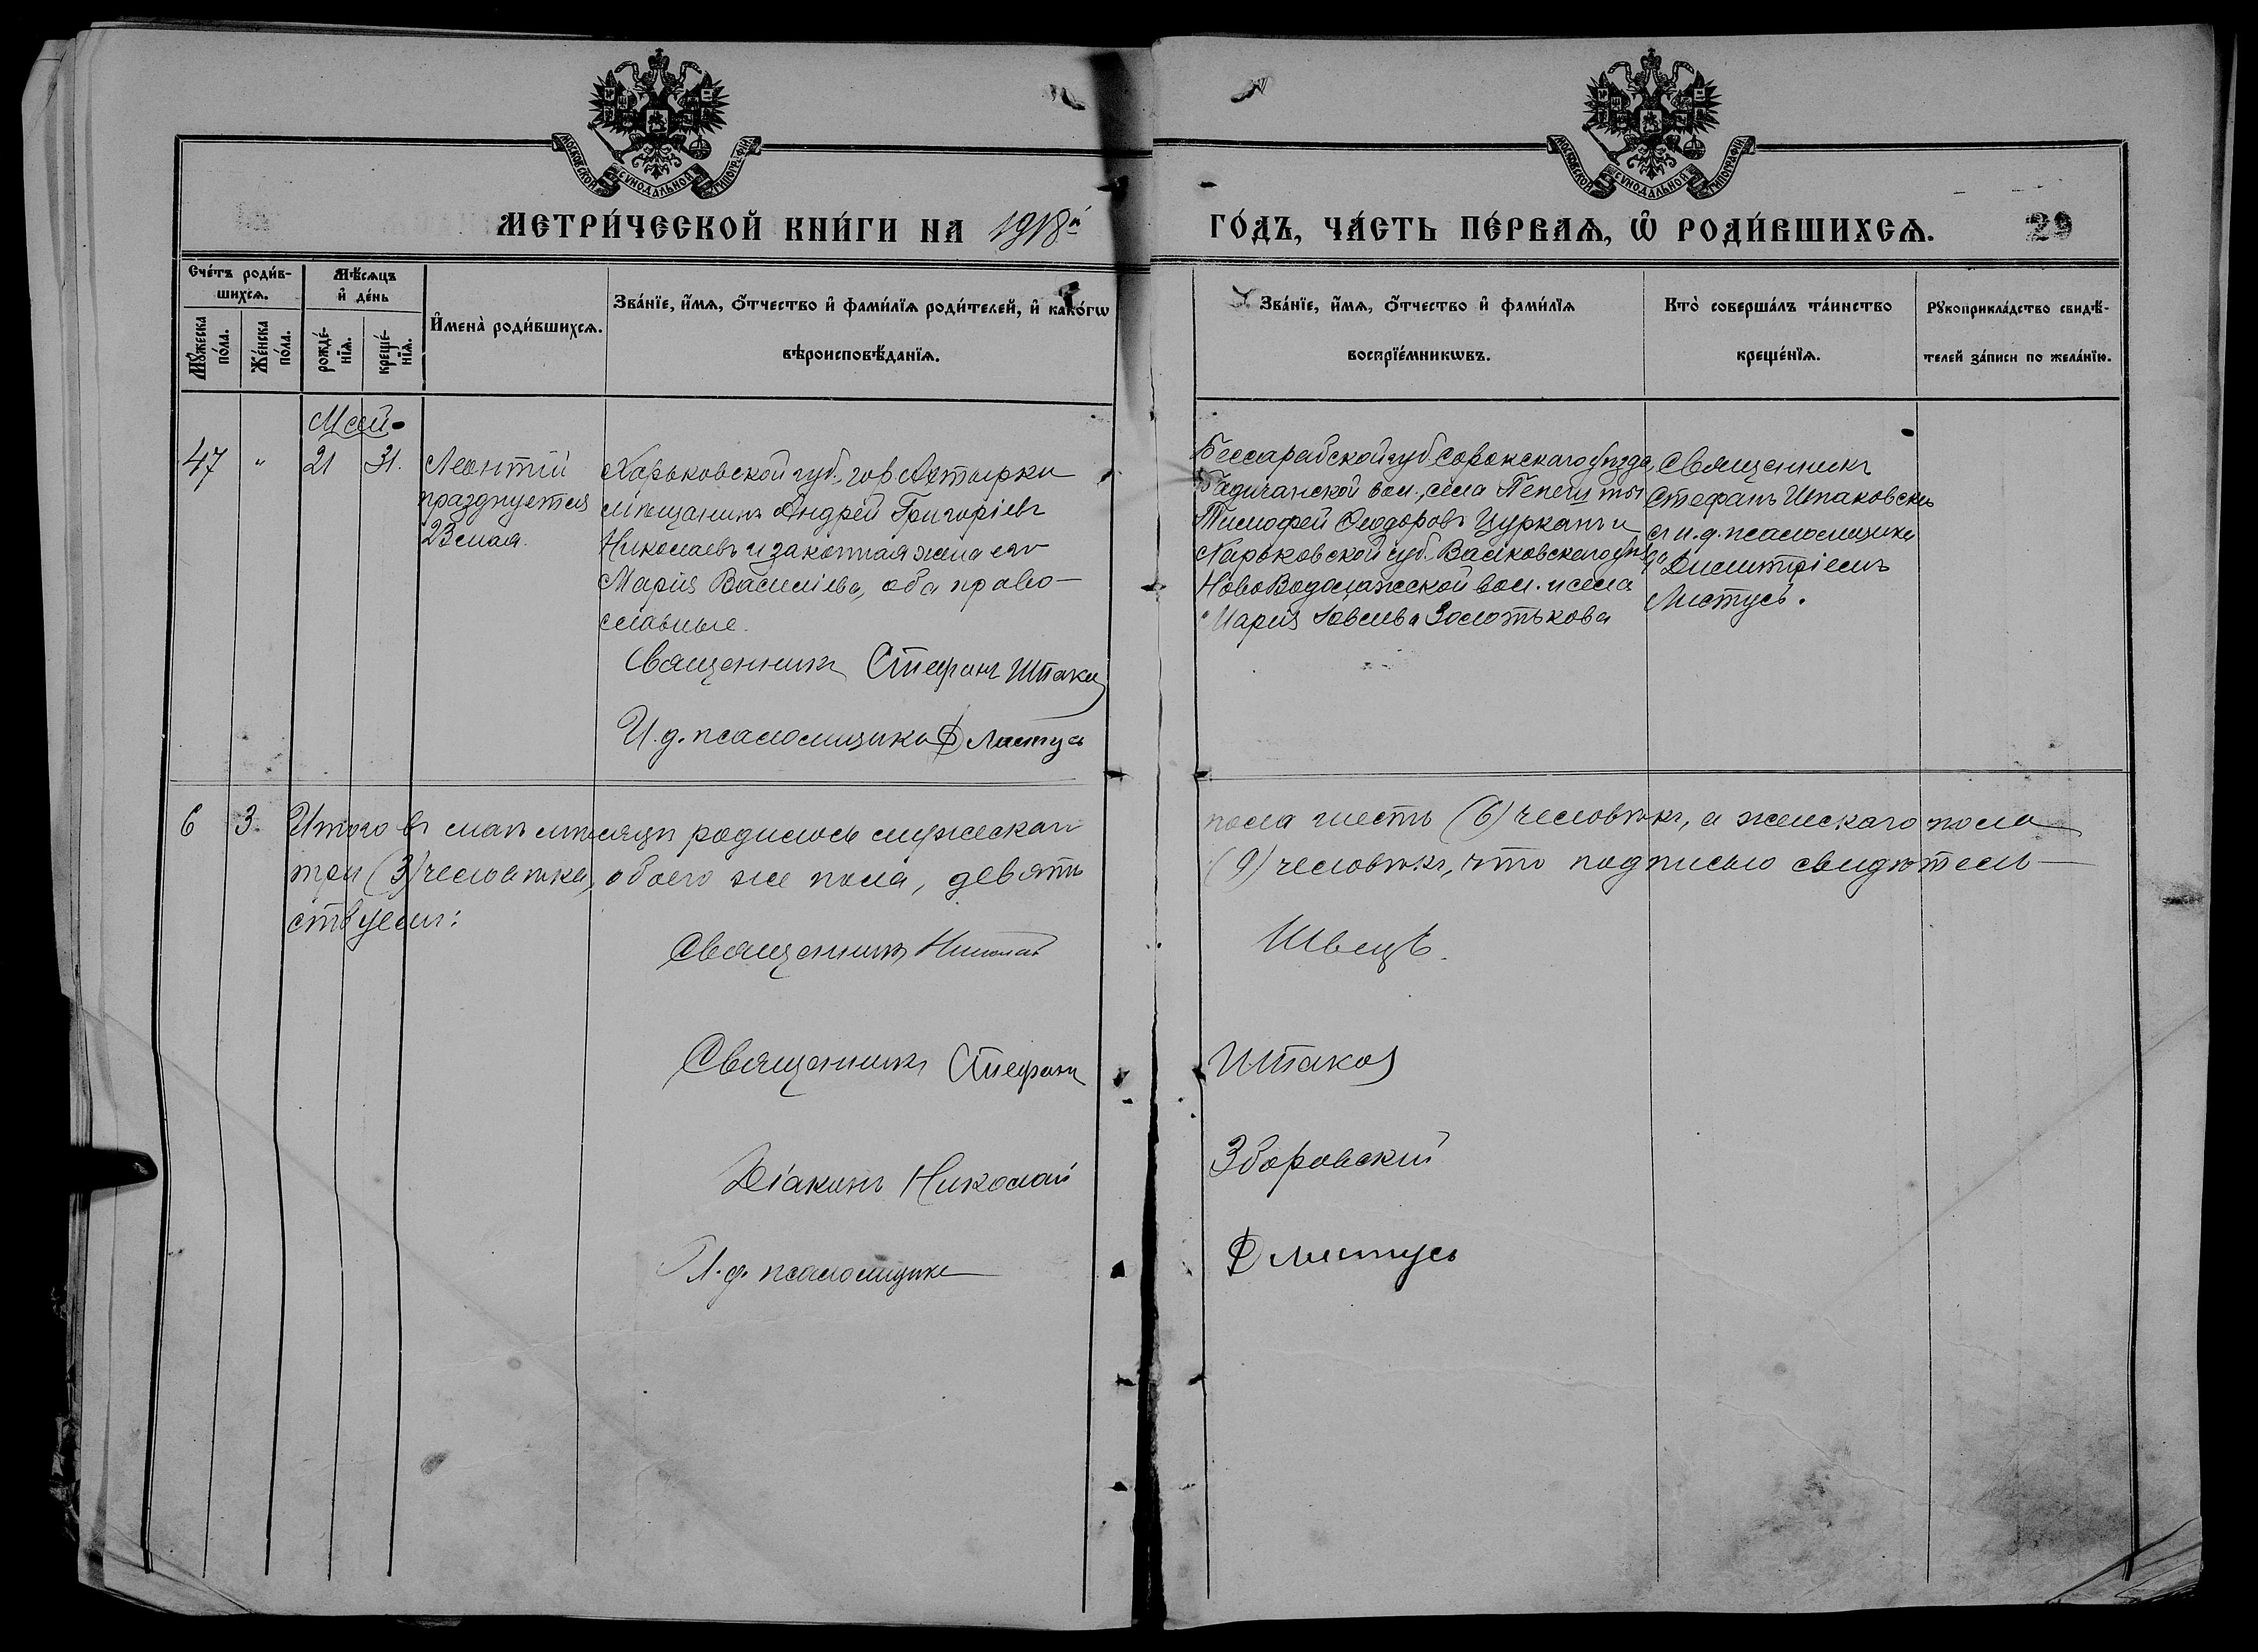 МОСКОВСКОЙ СѴНОДАЛЬНОЙ ТИПОГРАФІИ
МОСКОВСКОЙ СѴНОДАЛЬНОЙ ТИПОГРАФІИ
МЕТРИ́ЧЕСКОЙ КНИ́ГИ НА 1918й ГО́ДЪ, ЧА́СТЬ ПЕ́РВАѦ, Ѡ҆ РОДИ́ВШИХСѦ. 29
Сче́тъ роди́в-
шихсѧ.
Мꙋ́жеска по́ла.
Же́нска по́ла.
Мѣ́сѧцъ
и҆ де́нь
рожде́-
нїѧ.
креще́-
нїѧ.
И҆мена̀ роди́вшихсѧ.
Зва́нїе, и҆́мѧ, ѻ҆́тчество и҆ фами́лїѧ роди́телей, и҆ како́гѡ
вѣроисповѣ́данїѧ.
Зва́нїе, и҆́мѧ, ѻ҆́тчество и҆ фами́лїѧ
воспрїе́мникѡвъ.
Кто̀ соверша́лъ та́инство
креще́нїѧ.
Рꙋкоприкла́дство свидѣ́-
телей за́писи по жела́нїю.
Май
47 " 21 31.
Леонтій
празднуется
23 мая.
Харьковской губ., гор Ахтырки
мѣщанинъ Андрей Григоріевъ
Николаевъ и законная жена его
Марія Василіева, оба право-
славные.
Священникъ Стефанъ Шпаков
И.д. псаломщика Д Листусъ
Бессарабской губ. Сорокскаго уѣзда,
Бадичанской вол., села Пепены
Тимофей Ѳеодоровъ Цурканъ и
Харьковской губ. Валковскаго уѣз
Ново Водолажской вол. и села
Марія Золотькова
Священникъ
Стефанъ Шпаковскій
съ и.д. псаломщика
Димитріемъ
Листусъ.
6 3. Итого въ маѣ мѣсяцѣ родилось мужескаго пола шесть (6) человѣкъ, а женскаго пола
три (3) человѣка, обоего же пола, девять (9) человѣкъ, что подписью свидѣтель-
ствуемъ:
Священникъ Николай Швецъ.
Священникъ Стефанъ Шпаков
Діаконъ Николай Зборовскій
И.д. псаломщика Д Листусъ